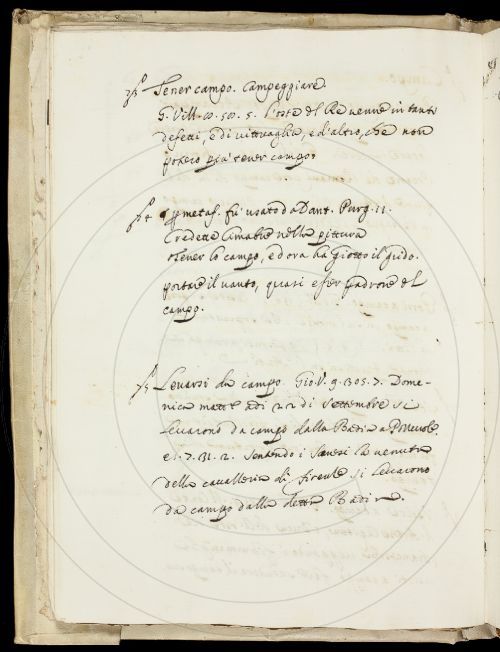 Tener campo. Campeggiare.
G. Vill. 10. 50. 5. l'oste del Re venne in tanti
defetti, e di vittuaglia, e d'altro, che non
potero più tener campo.
metaf. fu usato da Dant. Purg. 11.
Credette Cimabue nella pittura
tener lo campo, ed ora ha Giotto il grido.
portare il vanto, quasi esser padrone del
campo.
Levarsi da campo. Gio. V. 9. 305. 7. Dome-
nica matt. adì 22 di Settembre si
levarono da campo dalla Badia a
e 1. 7. 31. 2. Sentendo i Sanesi la venuta
della cavalleria di Firenze si levarono
da campo dalla detta Badia.